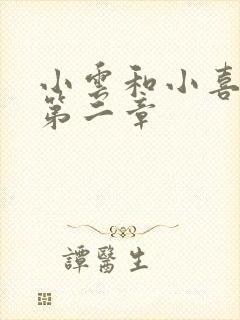 小雲和小喜
第二章
譚醫生